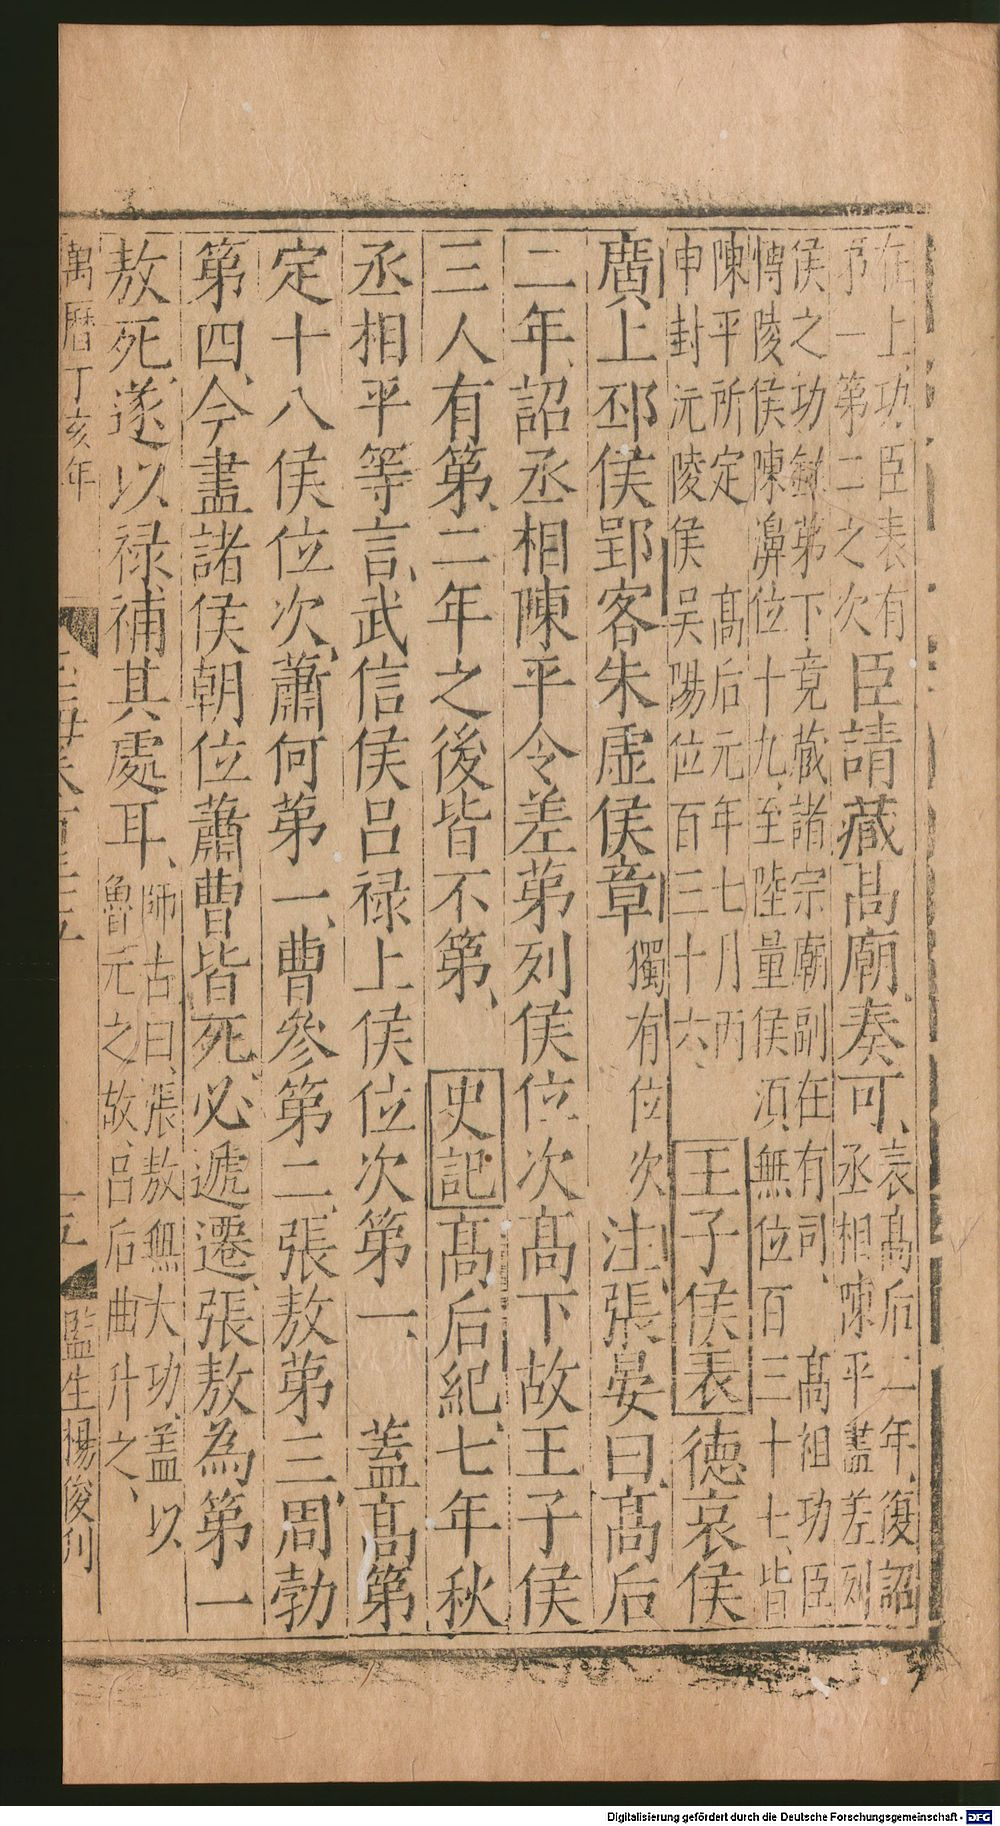 在上功臣表有
予一第二之次
臣請藏髙廟奏可、
表髙后二年、復詔
丞相陳平盡差列
侯之功録苐下竟藏諸宗廟副在有司、髙祖功臣
博陵侯陳濞位十九、至陸量侯湏無位百三十七、皆
陳平所定　髙后元年七月丙
申封沅陵侯吴陽位百三十六
王子侯表德哀侯
廣上邳侯郢客朱虚侯章　獨有位次　注張晏曰、髙后
二年、詔丞相陳平令差苐列侯位次髙下故王子侯
三人有第、二年之後皆不第、　史記髙后紀、七年秋
丞相平等言、武信侯吕禄上侯位次第一、　蓋髙第
定十八侯位次、蕭何苐一、曹參第二、張敖苐三、周勃
第四、今盡諸侯朝位蕭曹皆死必遞遷、張敖為第一
敖死、遂以禄補其處耳、
師古曰、張敖無大功、盖以
魯元之故、吕后曲升之、
萬曆丁亥年
監生楊俊刋
Digitalisierung gefördert durch die Deutsche Forschungsgemeinschaft - DFG